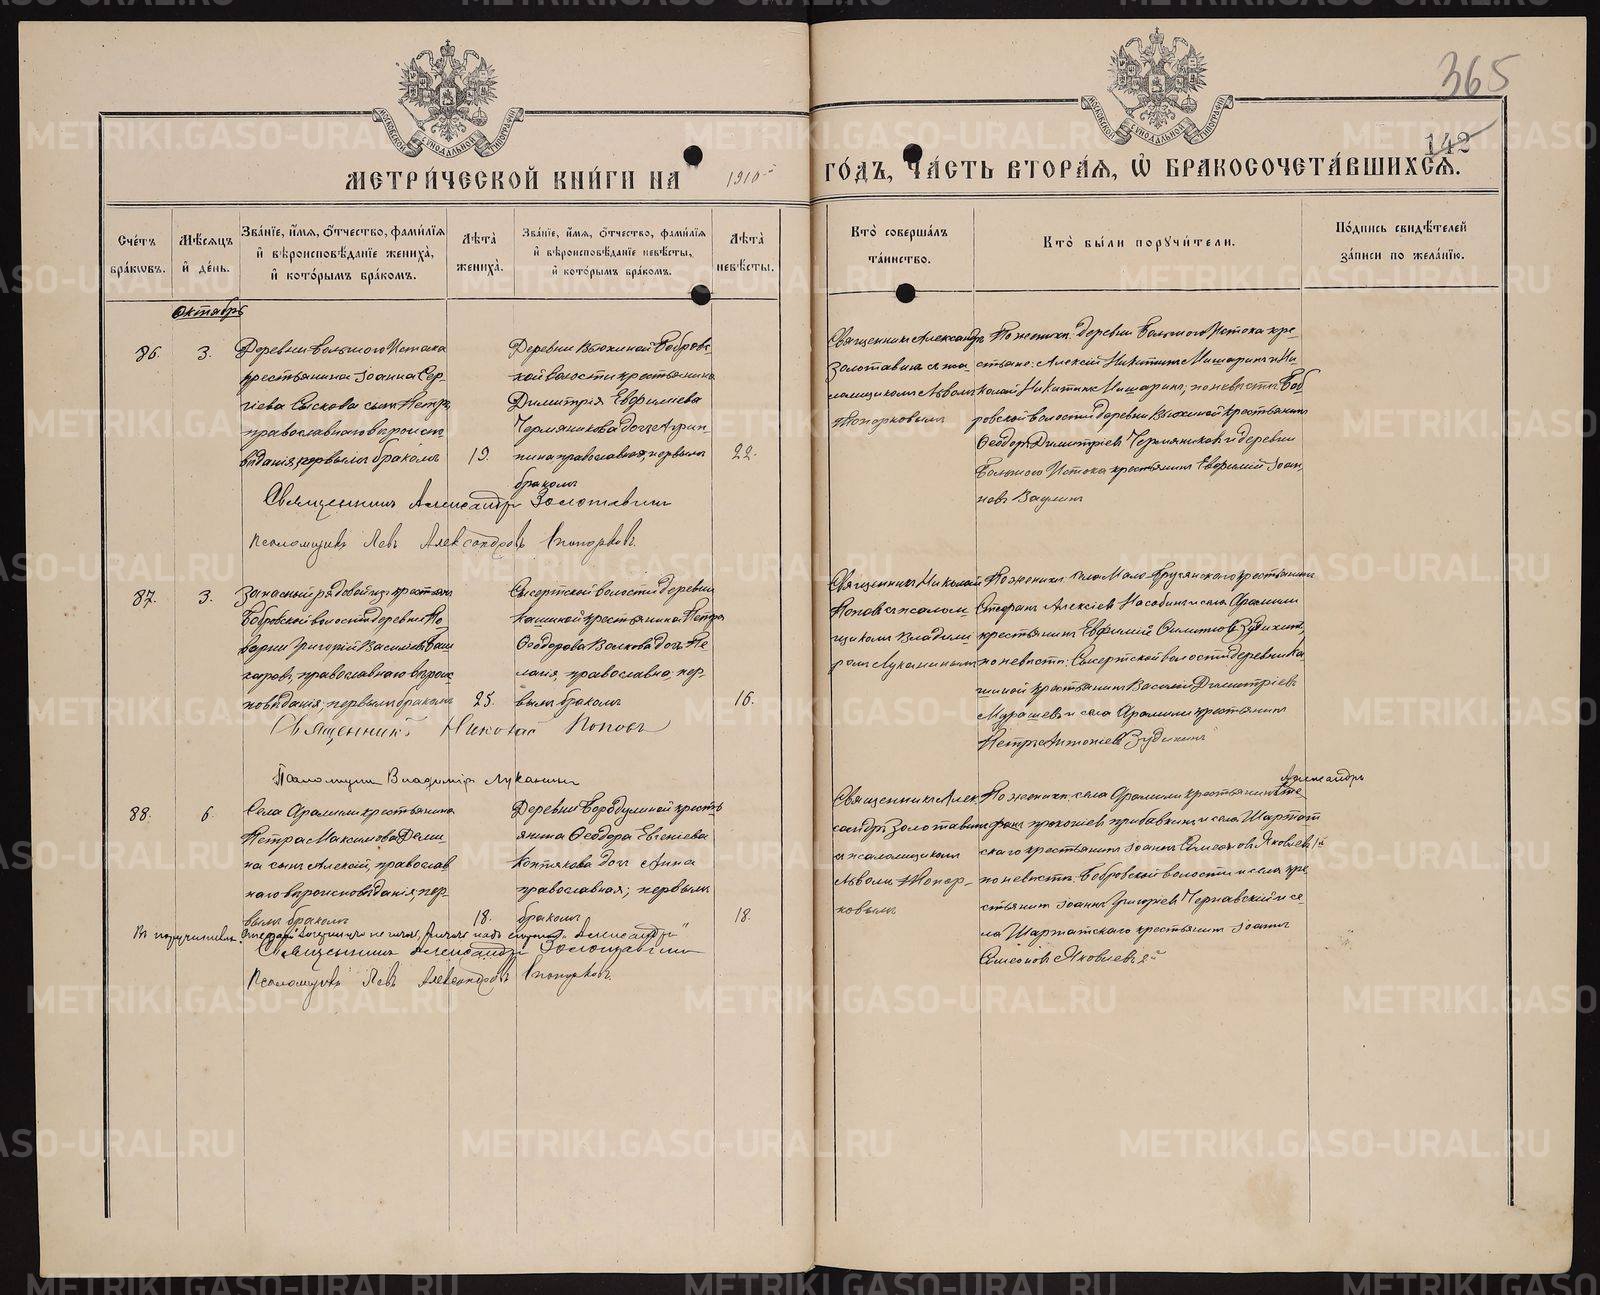 365
142
МЕТРИ́ЧЕСКОЙ КНИ́ГИ НА 1910 ГО́ДЪ, ЧА́СТЬ ВТОРА́Я, Ѡ БРАКОСОЧЕТА́ВШИХСЯ.
Сче́тъ бра́ковъ.
Мѣ́сяцъ и́ де́нь.
Зва́нїе, и́мя, ѻ́тчество, фамі́лїя и́ вѣроисповѣ́данїе жениха̀, и́ кото́рымъ бра́комъ.
Лѣ́та жениха̀.
Зва́нїе, и́мя, ѻ́тчество, фамі́лїя и́ вѣроисповѣ́данїе невѣ́сты, и́ кото́рымъ бра́комъ.
Лѣ́та невѣ́сты.
Кто̀ соверша́лъ та́инство.
Кто̀ бы́ли поручи́тели.
По́дпись свидѣ́телей за́писи по жела́нїю.
Октябрь
86.
3.
Деревни Большого Истока
крестьянина Іоанна Сер-
гіева Сыскова сынъ Петръ,
православнаго вѣроисп-
вѣданія, первымъ бракомъ
19.
Деревни Вьюхиной Бобровс-
кой волости крестьянина
Димитрія Евфиміева
Чермяникова дочь Агрип-
пина православная, первымъ
бракомъ
22.
Священникъ Александръ
Золотавинъ съ пса
ломщикомъ Львомъ
Топорковымъ
По женихѣ: деревни Большого Истока кре-
стьяне: Алексій Никитинъ Мишаринъ и Ни
колай Никитинъ Мишаринъ; по невѣстѣ: Боб
ровской волости деревни Вьюхиной крестьянинъ
Ѳеодоръ Димитріевъ Чермяниковъ и деревни
Большого Истока крестьянинъ Евфимій Іоан
новъ
Священникъ Александръ Золотавинъ
Псаломщикъ Левъ Александровъ Топорковъ.
87.
3.
Запасный рядовой изъ крестьянъ
Бобровской волости деревни По
варни Григорій Васильевъ
православнаго вѣроис-
повѣданія, первымъ бракомъ
25.
Сысертской волости деревни
Кашиной крестьянина Петра
Ѳеодорова Волкова дочь Пе
лагія, православная, пер-
вымъ бракомъ
16.
Священникъ Николай
Поповъ съ псалом
щикомъ Владими
ромъ Луканинымъ
По женихѣ: села Мало-Брусянскаго крестьянинъ
Стефанъ Алексіевъ и села Арамили
крестьянинъ Евфимій Зудихинъ,
по невѣстѣ: Сысертской волости деревни Ка
шиной крестьянинъ Василій Димитріевъ
Мурашевъ и села Арамили крестьянинъ
Петръ Антоніевъ Зудихинъ
Священникъ Николай Поповъ
Псаломщикъ Владиміръ Луканинъ
88.
6.
Села Арамили крестьянина
Петра Максимова Деми-
на сынъ Алексій, православ
наго вѣроисповѣданія, пер-
вымъ бракомъ
18.
Деревни Бородулиной кресть
янина Ѳеодора Евгеніева
Контякова дочь Анна
православная; первымъ
бракомъ
18.
Священникъ Алек
сандръ Золотавинъ
съ псаломщикомъ
Львомъ Топор-
ковымъ
Александръ
По женихѣ: села Арамили крестьянинъ Сте
фанъ Прокопіевъ Прибавкинъ и села Шарташ
скаго крестьянинъ Іоаннъ Симеоновъ Яковлевъ 1й
по невѣстѣ: Бобровской волости и села кре
стьянинъ Іоаннъ Григоріевъ Чернавскій и се
ла Шарташскаго крестьянинъ Іоаннъ
Симеоновъ Яковлевъ 2й
Священникъ Александръ Золотавинъ
Псаломщикъ Левъ Александровъ Топорковъ.
METRIKI.GASO-URAL.RU